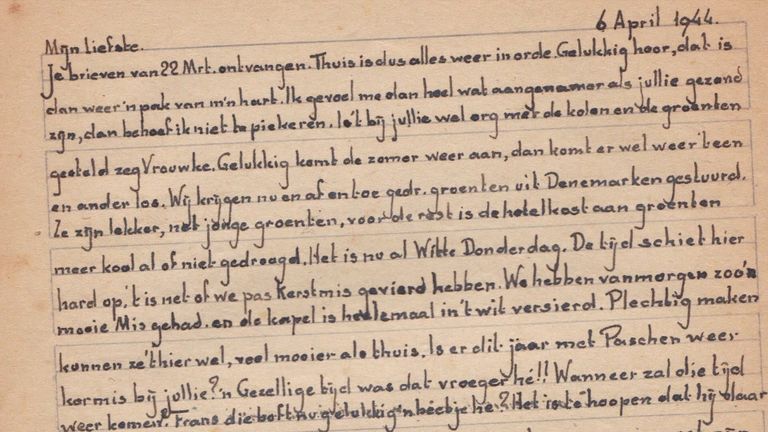 6 April 1944.
Mijn liefste.
Je brieven van 22 Mrt. ontvangen. Thuis is dus alles weer in orde. Gelukkig hoor, dat is
dan weer 'n pak van m'n hart. Ik gevoel me dan heel wat aangenamer als jullie gezond
zijn, dan behoef ik niet te piekeren. Is 't bij jullie wel erg met de kolen en de groenten
gesteld zeg Vrouwke. Gelukkig komt de zomer weer aan, dan komt er wel weer 't een
en ander los. Wij krijgen nu en af en toe gedr. groenten uit Denemarken gestuurd.
Ze zijn lekker, net jonge groenten, voor de rest is de hotelkost aan groenten
meer kool al of niet gedroogd. Het is nu al Witte Donderdag. De tijd schiet hier
hard op, 't is net of we pas Kerstmis gevierd hebben. We hebben vanmorgen zoo'n
mooie Mis gehad. en de kapel is heelemaal in 't wit versierd. Plechtig maken
kunnen ze 't hier wel, veel mooier als thuis. Is er dit jaar met Paschen weer
kermis bij jullie? 'n Gezellige tijd was dat vroeger hé!! Wanneer zal die tijd
weer komen? Frans die boft nu gelukkig 'n beetje hé? Het is te hoopen dat hij daar